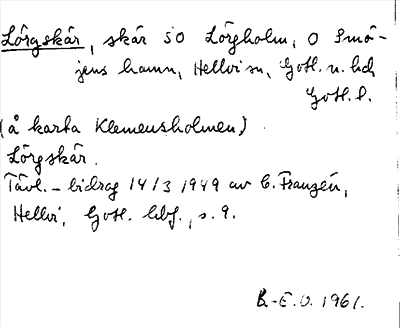 Lörgskär, skär SO Lörgholm, O Smö-
jens hamn, Hellvi sn, Gotl. n. hd,
Gotl. l.
(å karta Klemensholmen)
Lörgskär.
Tävl.-bidrag 14/3 1949 av C. Franzén,
Hellvi, Gotl. bbf., s. 9.
B.-E.O. 1961.